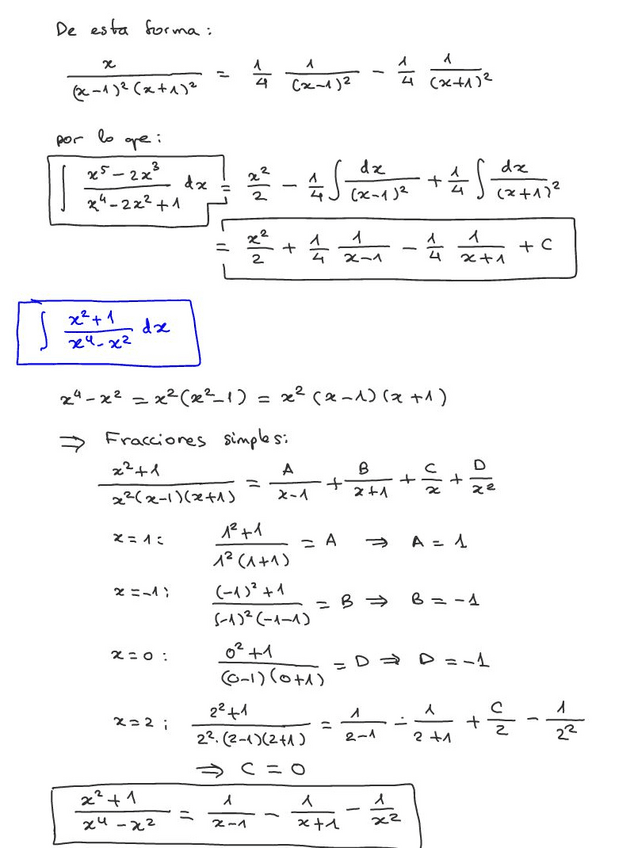 De esta forma:
x/((x-1)²(x+1)²) = 1/4 1/(x-1)² - 1/4 1/(x+1)²
por lo que:
∫ (x⁵-2x³)/(x⁴-2x²+1) dx = x²/2 - 1/4 ∫ dx/(x-1)² + 1/4 ∫ dx/(x+1)²
= x²/2 + 1/4 1/(x-1) - 1/4 1/(x+1) + C
∫ (x²+1)/(x⁴-x²) dx
x⁴-x² = x²(x²-1) = x²(x-1)(x+1)
⇒ Fracciones simples:
(x²+1)/(x²(x-1)(x+1)) = A/(x-1) + B/(x+1) + C/x + D/x²
x=1: (1²+1)/(1²(1+1)) = A ⇒ A = 1
x=-1: ((-1)²+1)/((-1)²(-1-1)) = B ⇒ B = -1
x=0: (0²+1)/((0-1)(0+1)) = D ⇒ D = -1
x=2: (2²+1)/(2²·(2-1)(2+1)) = 1/(2-1) - 1/(2+1) + C/2 - 1/2²
⇒ C = 0
(x²+1)/(x⁴-x²) = 1/(x-1) - 1/(x+1) - 1/x²